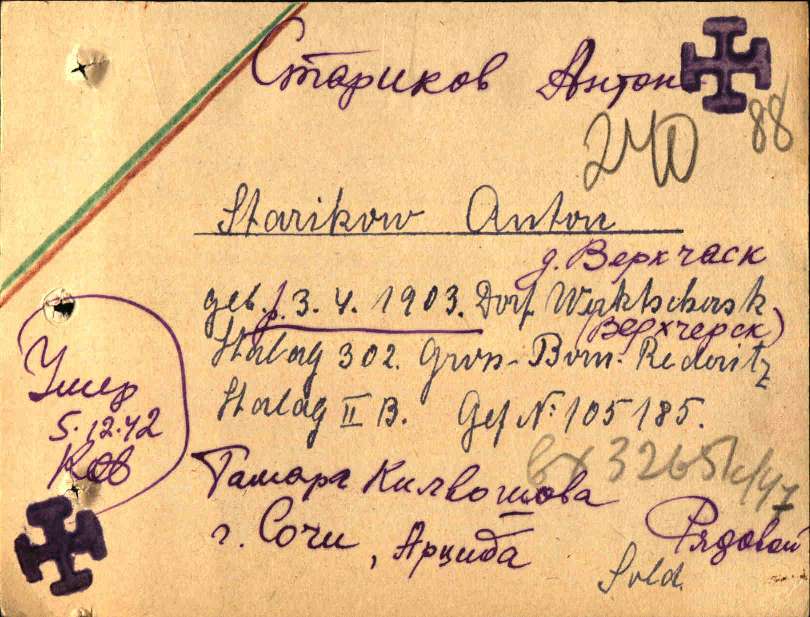 Стариков Антон
240 88
Starikow Anton
д. Верхчаск
geb. р. 3. 4. 1903. Dorf Werktscharsk
(Верхчерск)
Stalag 302. Gross-Born-Rederitz
Stalag II B. Gef № 105185.
Умер
5.12.42
вх 32651с/47
Тамара Килвошова
г. Сочи, Арцида
Рядовой
Sold.